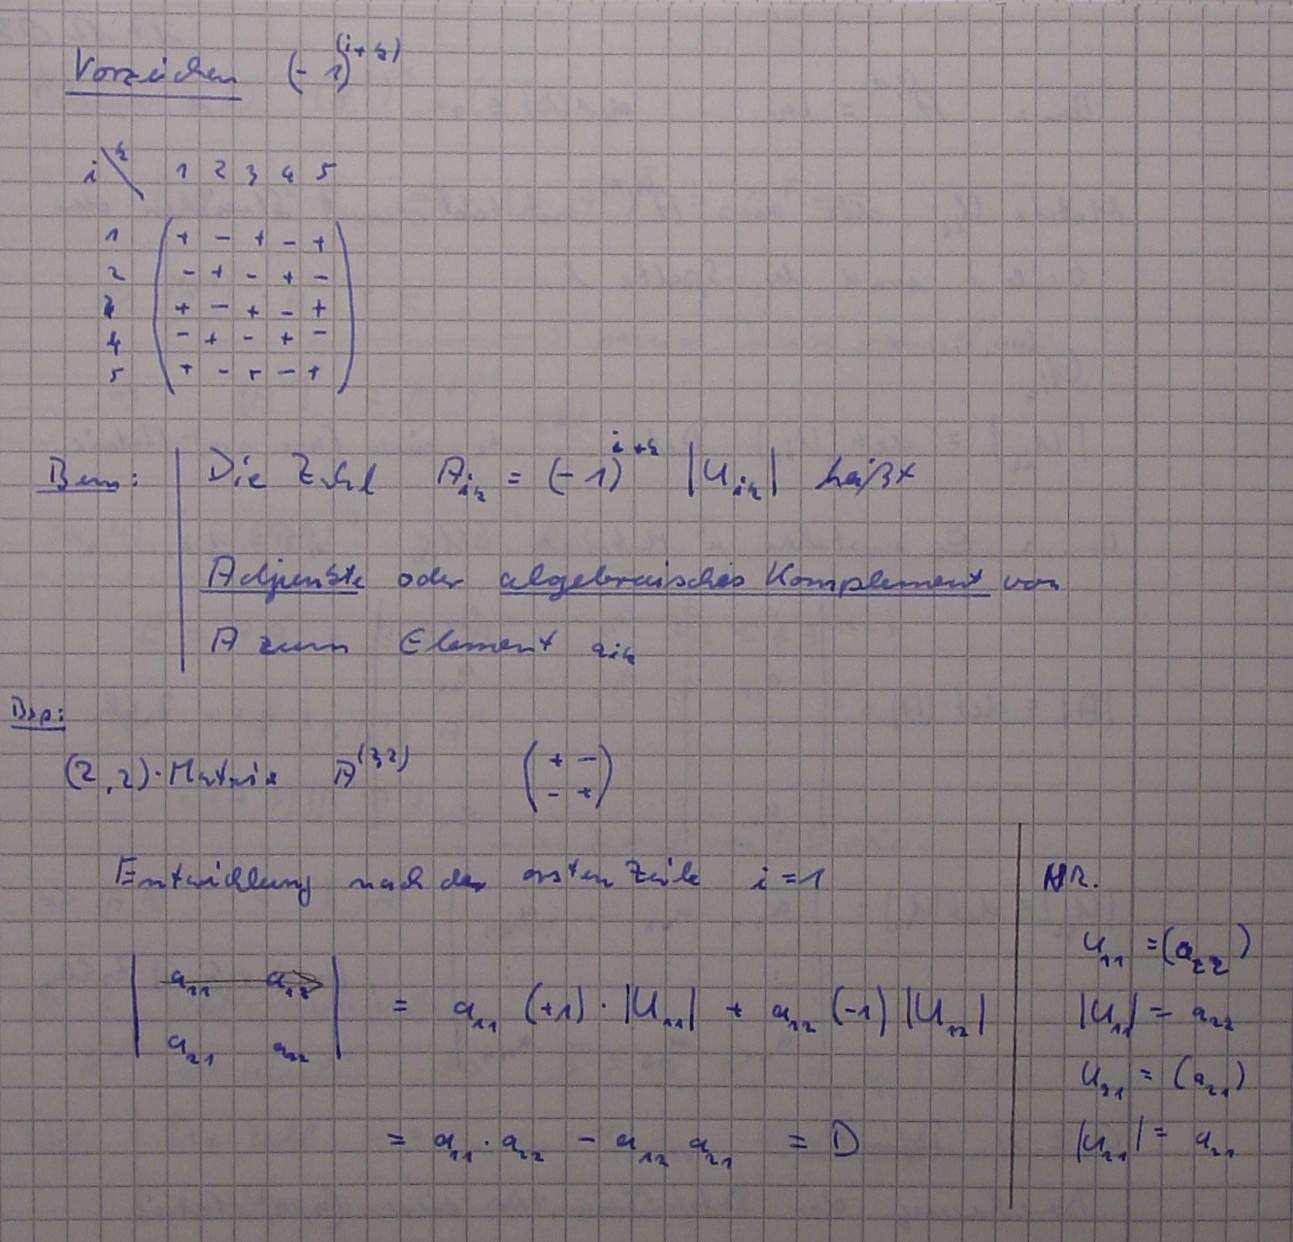 Vorzeichen (-1)^(i+k)
i \ k 1 2 3 4 5
1 + - + - +
2 - + - + -
3 + - + - +
4 - + - + -
5 + - + - +
Bem: Die Zahl A_ik = (-1)^i+k |U_ik| heißt
Adjunkte oder algebraisches Komplement von
A zum Element a_ik
Bsp:
(2,2)·Matrix A^(2,2) ( + - )
( - + )
Entwicklung nach der ersten Zeile i = 1
NR.
U_11 = (a_22)
| a_11 a_12 | = a_11 (+1) · |U_11| + a_12 (-1) |U_12|
|U_11| = a_22
| a_21 a_22 |
U_21 = (a_21)
= a_11 · a_22 - a_12 a_21 = D
|U_21| = a_21